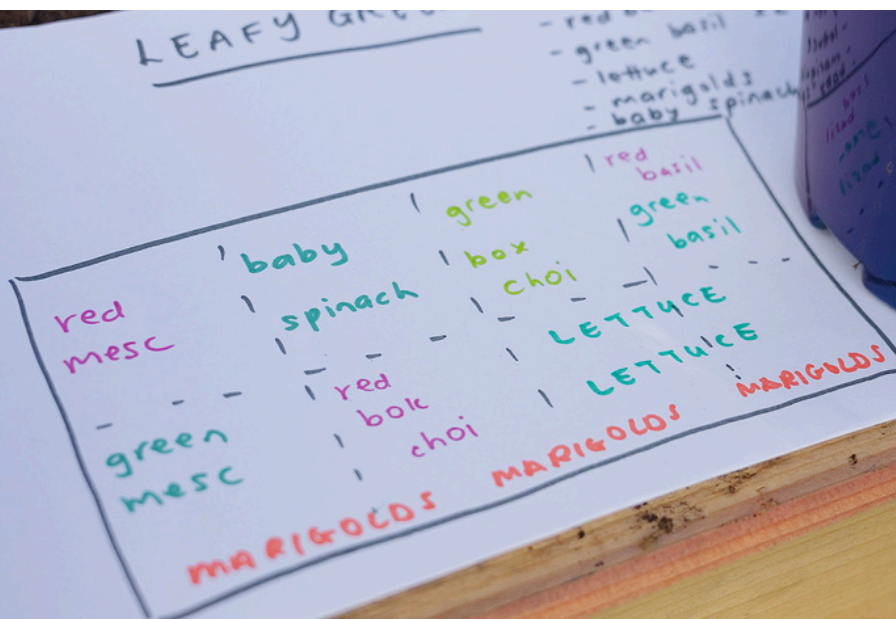 LEAFY
- red
- green basil
- lettuce
- marigolds
- baby spinach
red
mesc
baby
spinach
green
box
choi
red
basil
green
basil
green
mesc
red
bok
choi
LETTUCE
LETTUCE
MARIGOLDS
MARIGOLDS
MARIGOLDS